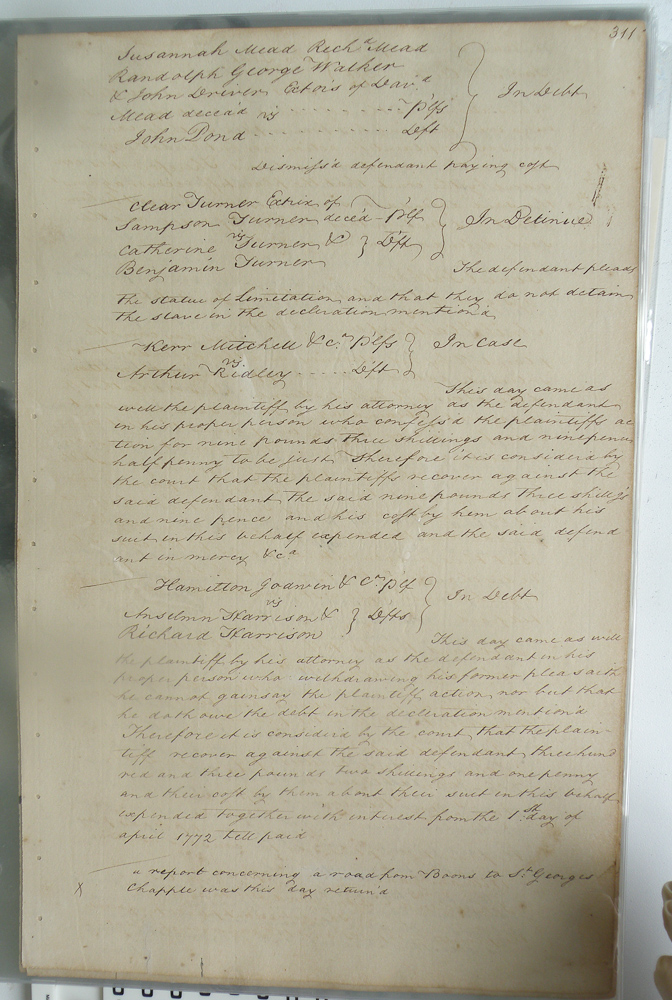 311
Susannah Mead Rich.d Mead
Randolph George Walker
& John Driver Ector's of Dav.d
Mead decea'd vs Plfs } In Debt
John Pond Deft
Dismiss'd defendant paying cost
Clear Turner Extrix of
Sampson Turner decea'd Plf } In Detinue
vs
Catherine Turner & } Dfts
Benjamin Turner
The defendant pleads
the statue of limitation and that they do not detain
the slave in the declaration mention'd
Kerr Mitchell & C.o Plfs } In Case
vs
Arthur Ridley Deft
This day came as
well the plaintiff by his attorney as the defendant
in his proper person who confess'd the plaintiffs ac
tion for nine pounds three shillings and ninepence
halfpenny to be just Therefore it is consider'd by
the court that the plaintiffs recover against the
said defendant the said nine pounds three shill'gs
and nine pence and his cost by hem about his
suit in this behalf expended and the said defend
ant in mercy &c.a
Hamilton Godwin & C.o Plf } In Debt
vs
Anselmn Harrison & } Dfts
Richard Harrison
This day came as well
the plaintiff by his attorney as the defendant in his
proper person who withdrawing his former plea saith
he cannot gainsay the plaintiff action nor but that
he doth owe the debt in the declaration mention'd
Therefore it is consider'd by the court that the plain-
tiff recover against the said defendant three hund
red and three pounds two shillings and one penny
and their cost by them about their suit in this behalf
expended together with interest from the 1.st day of
april 1772 till paid
a report concerning a road from Boons to S.t Georges
X Chapple was this day return'd